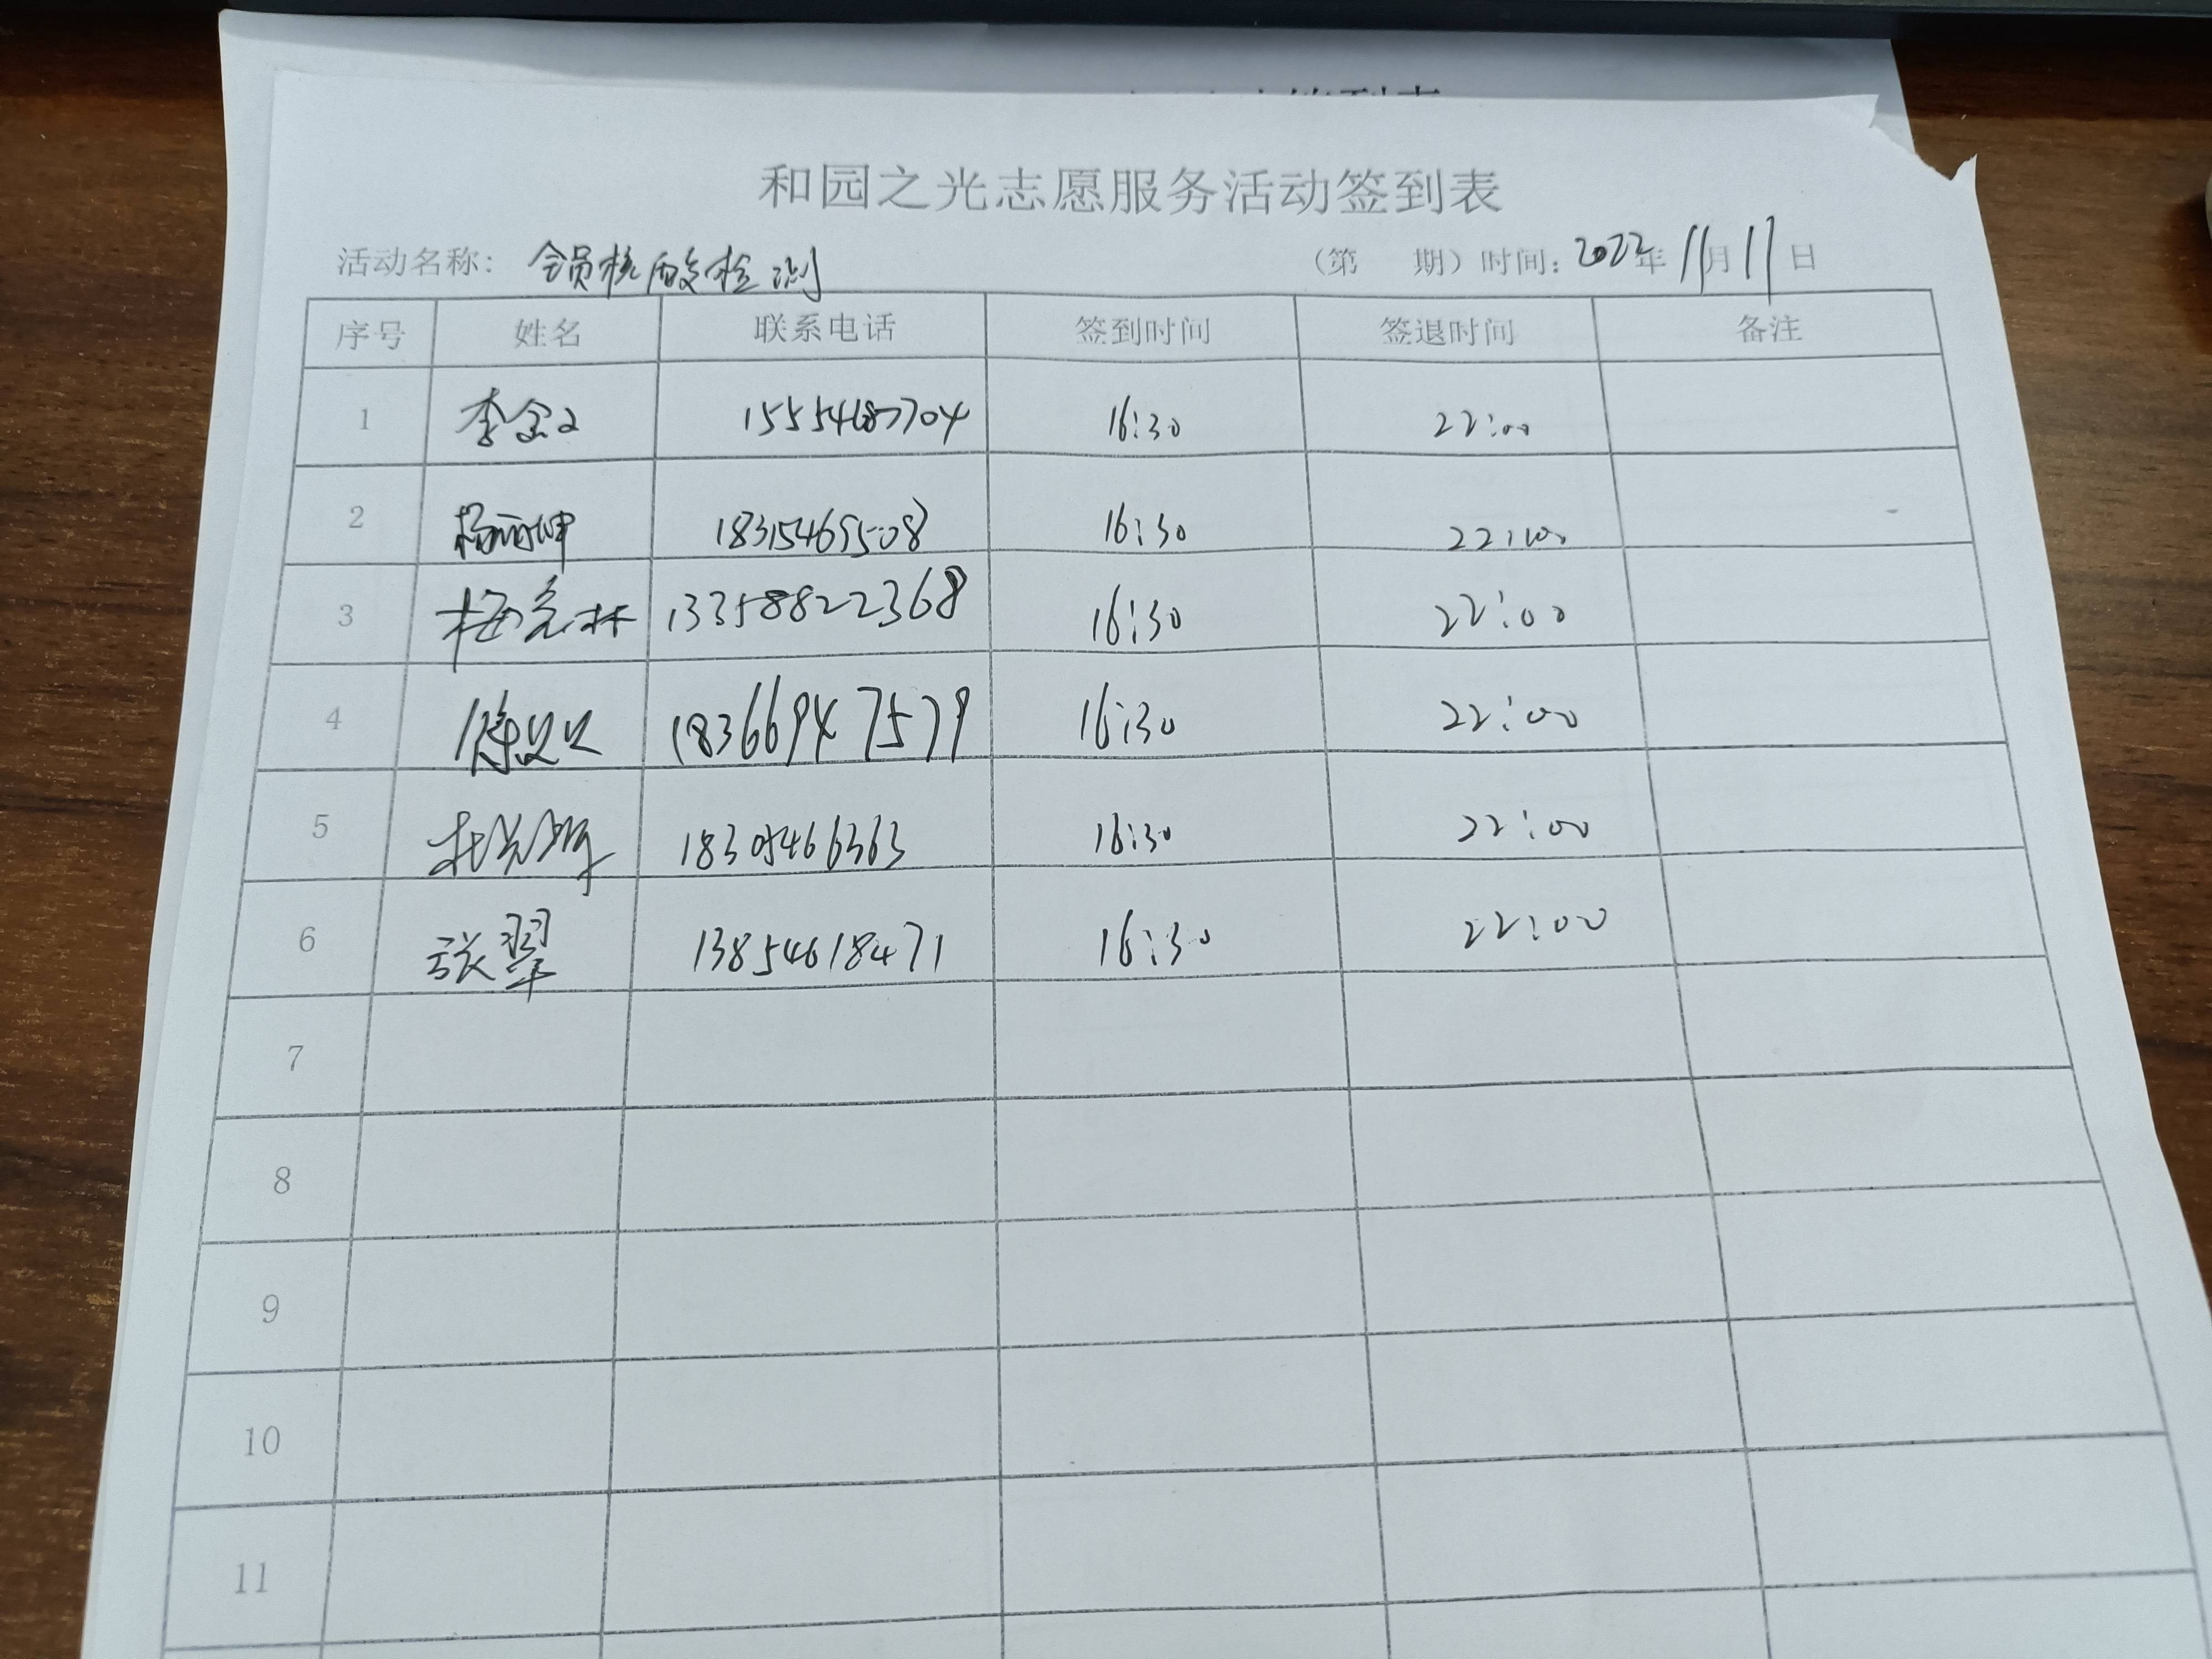 和园之光志愿服务活动签到表
活动名称: 全员核酸检测 (第 期) 时间: 2022年 11月 11日
序号 姓名 联系电话 签到时间 签退时间 备注
1 15554687704 16:30 22:00
2 18315469508 16:30 22:00
3 梅 林 13358822368 16:30 22:00
4 徐 18366947579 16:30 22:00
5 杜 18305466363 16:30 22:00
6 张翠 13854618471 16:30 22:00
7
8
9
10
11